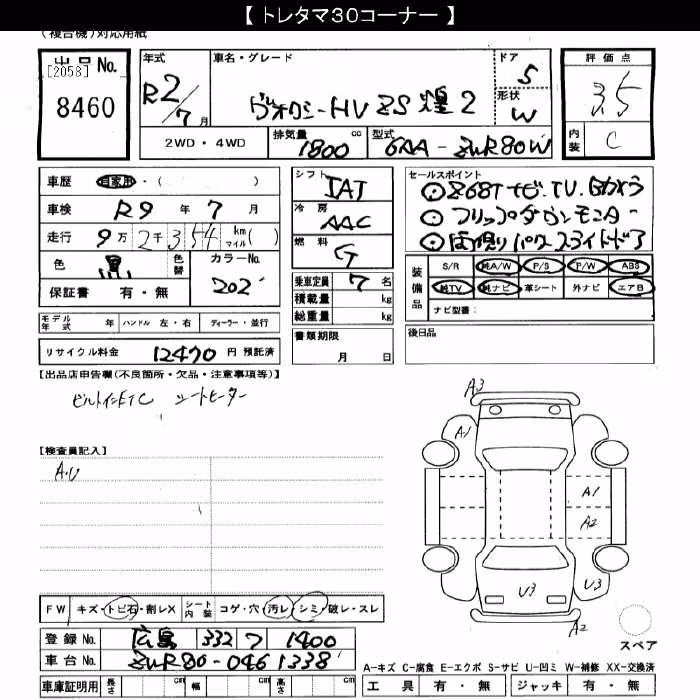 【 トレタマ30コーナー 】
(複合機)対応用紙
出品No.
[2058]
8460
年式
R2/7月
車名・グレード
ヴォクシーHV ZS 煌 2
ドア
5
形状
W
評価点
3.5
内装
C
2WD・4WD
排気量 1800 cc
型式 6AA-ZWR80W
車歴 自家用・( )
車検 R9年 7月
走行 9万2千354 km マイル( )
色 黒 色替
カラーNo. 202
保証書 有・無
シフト IAT
冷房 AAC
燃料 G
乗車定員 7名
積載量 kg
総重量 kg
セールスポイント
⊙Z68Tナビ.TV.Bカメラ
⊙フリップダウンモニター
⊙両側パワースライドドア
装備品
S/R 純A/W P/S P/W ABS
純TV 純ナビ 革シート 外ナビ エアB
ナビ型番:
モデル年式 年 ハンドル 左・右 ディーラー・並行
リサイクル料金 12470 円 預託済
書類期限
月 日
後日品
【出品店申告欄(不良箇所・欠品・注意事項等)】
ビルトインETC シートヒーター
【検査員記入】
A.U
A3
A1
A1
A2
U3
U3
A2
スペア
FW キズ・トビ石・割レX シート内装 コゲ・穴・汚レ・シミ・破レ・スレ
登録No. 広島 332 ワ 1400
車台No. ZWR80-0461338
車庫証明用 長さ cm 幅 cm 高さ cm
A-キズ C-腐食 E-エクボ S-サビ U-凹ミ W-補修 XX-交換済
工具 有・無 ジャッキ 有・無